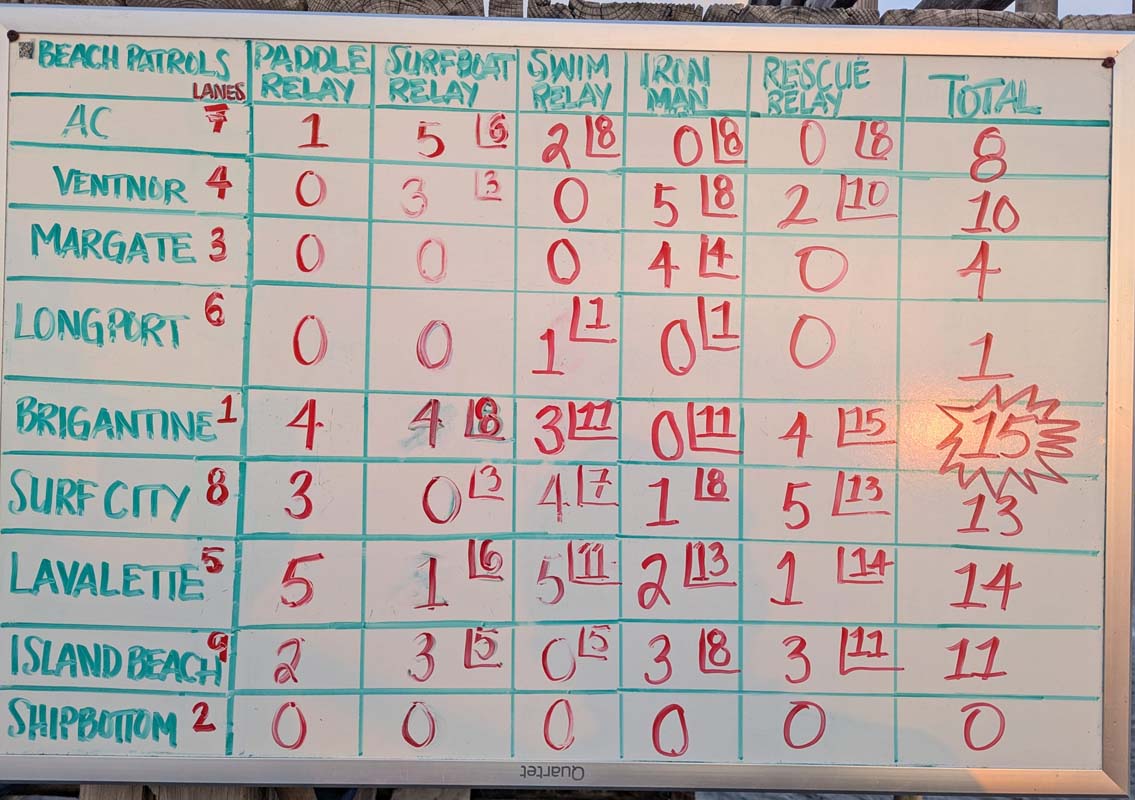 BEACH PATROLS LANES PADDLE RELAY SURFBOAT RELAY SWIM RELAY IRON MAN RESCUE RELAY TOTAL
AC 7 1 5 6 2 8 0 8 0 8 8
VENTNOR 4 0 3 3 0 5 8 2 10 10
MARGATE 3 0 0 0 4 4 0 4
LONGPORT 6 0 0 1 1 0 1 0 1
BRIGANTINE 1 4 4 8 3 11 0 11 4 15 15
SURF CITY 8 3 0 3 4 7 1 8 5 13 13
LAVALETTE 5 5 1 6 5 11 2 13 1 14 14
ISLAND BEACH 9 2 3 5 0 5 3 8 3 11 11
SHIPBOTTOM 2 0 0 0 0 0 0
Quartet